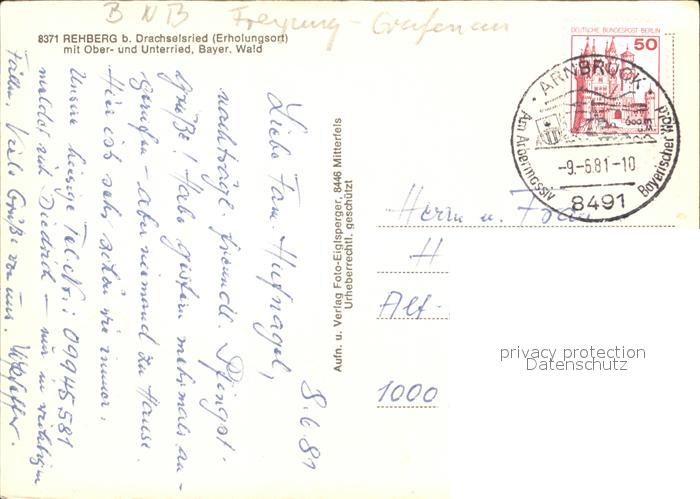 BNB Freyung-Grafenau
8371 REHBERG b. Drachselsried (Erholungsort)
mit Ober- und Unterried, Bayer. Wald
8.6.81
Liebe Fam. Hufnagel,
nachträgl. freundl. Pfingst-
grüße! Habe gestern mehrmals an-
gerufen - aber niemand zu Hause.
Hier ist sehr schön wie immer.
Unsere hiesige Tel.Nr.: 09945 581
meldet sich Diedrich - nur in wichtigen
Fällen. Viele Grüße von uns.
Aufn. u. Verlag Foto-Eiglsperger, 8446 Mitterfels
Urheberrechtl. geschützt
DEUTSCHE BUNDESPOST BERLIN
50
ARNBRUCK
Am Arbermassiv
Bayerischer Wald
-9.-6.81-10
8491
Herrn u. Frau
H
Alt-
1000
privacy protection
Datenschutz